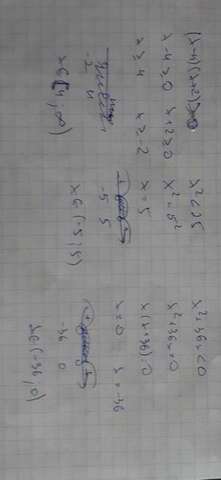 (x-4)(x+2)≥0
x-4≥0 x+2≥0
x≥4 x≥-2
-2 4
x∈[4;∞)
x²<25
x²=5²
x=5
-5 5
x∈(-5;5)
x²+36x<0
x²+36x=0
x(x+36)=0
x=0 x=-36
-36 0
x∈(-36;0)